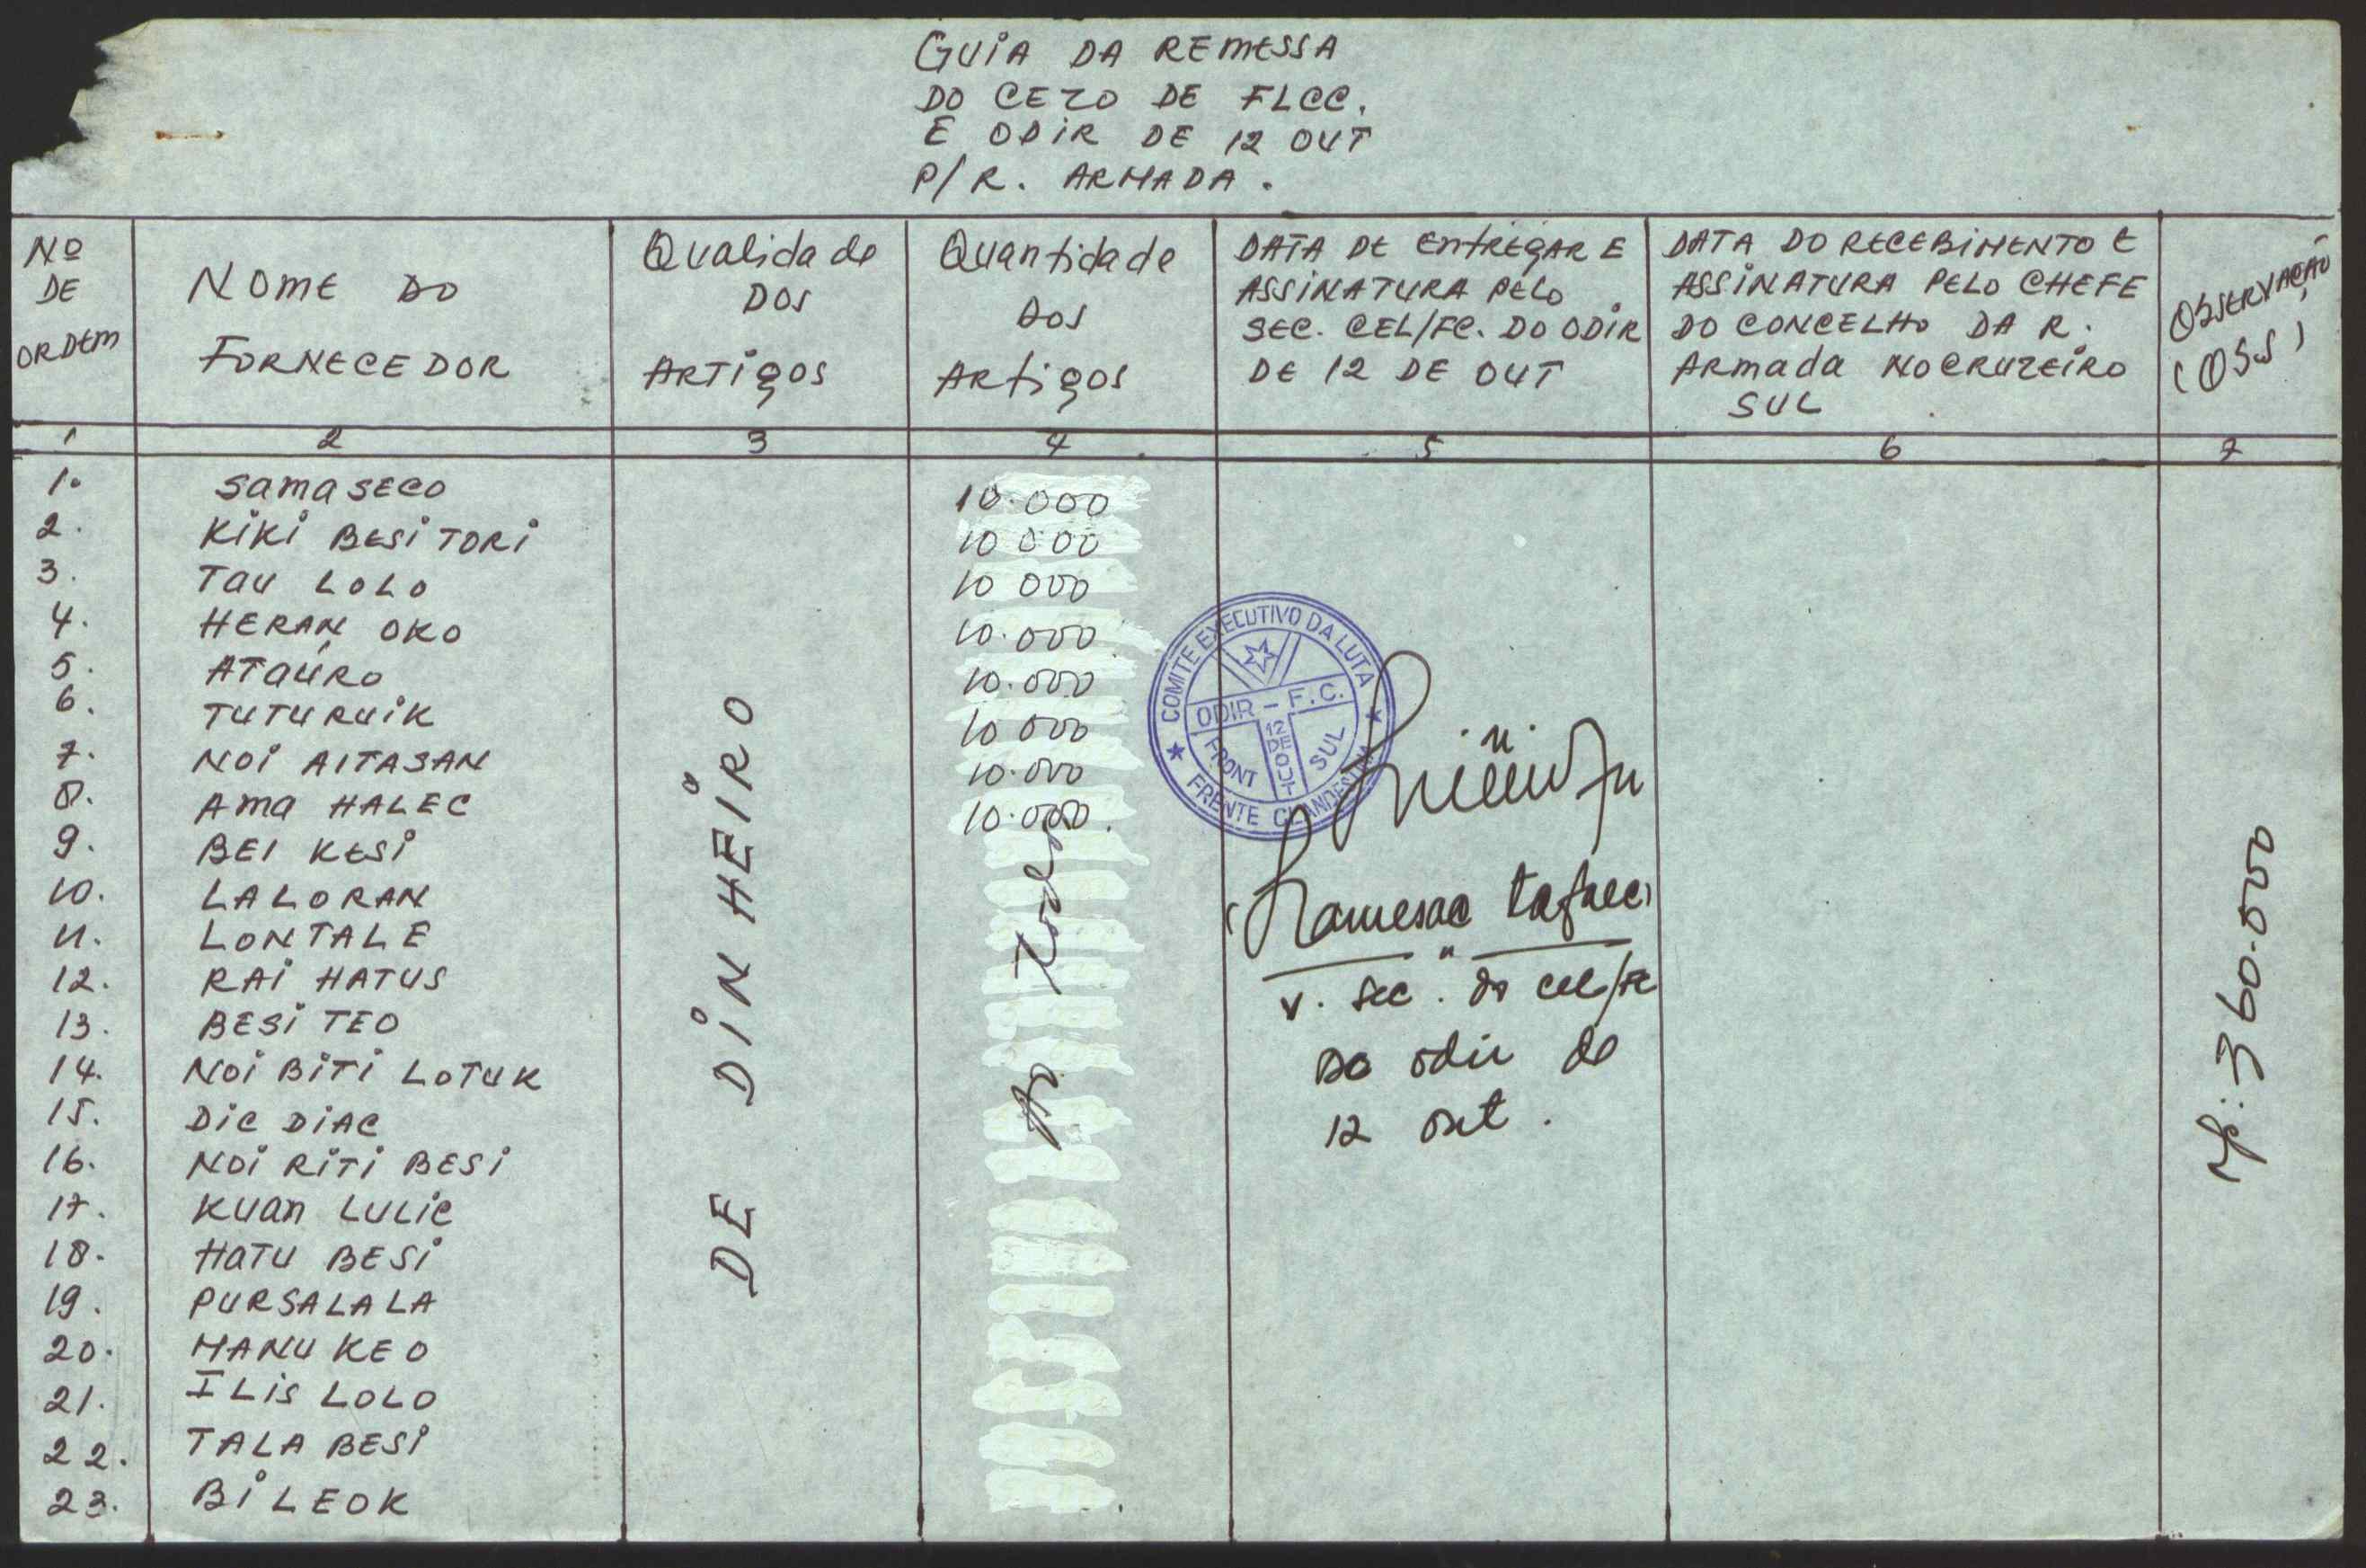 GUIA DA REMESSA
DO CEZO DE FLCC.
E ODIR DE 12 OUT
P/R. ARMADA.
Nº DE ORDEM
NOME DO FORNECEDOR
Qualidade DOS ARTIGOS
Quantidade DOS ARtigos
DATA DE EntREGAR E ASSINATURA PELO SEC. CEL/FC. DO ODIR DE 12 DE OUT
DATA DO RECEBIMENTO E ASSINATURA PELO CHEFE DO CONCELHO DA R. ARmada NO CRUZEIRO SUL
OBSERVAÇÃO
1 2 3 4 5 6 7
1. SamaSECO 10.000
2. KIKI BESI TORI 10 000
3. Tau LOLO 10 000
4. HERAN OKO 10.000
5. ATaúRO 10.000
6. TUTURUIK 10 000
7. NOI AITASAN 10.000
8. Ama HALEC 10.000.
9. BEI KESI
10. LALORAN
11. LONTALE
12. RAI HATUS
13. BESI TEO
14. NOI BITI LOTUK
15. DIC DIAC
16. NOI RITI BESI
17. KUAn LULIC
18. HATU BESI
19. PURSALALA
20. MANU KEO
21. ILIS LOLO
22. TALA BESI
23. BILEOK
DE DINHEIRO
COMITE EXECUTIVO DA LUTA
ODIR - F.C.
FRONT SUL
12 DE OUT
FRENTE CLANDESTINA
v. sec. do cel/FC
DO odir de
12 out.
Rp: 360.000